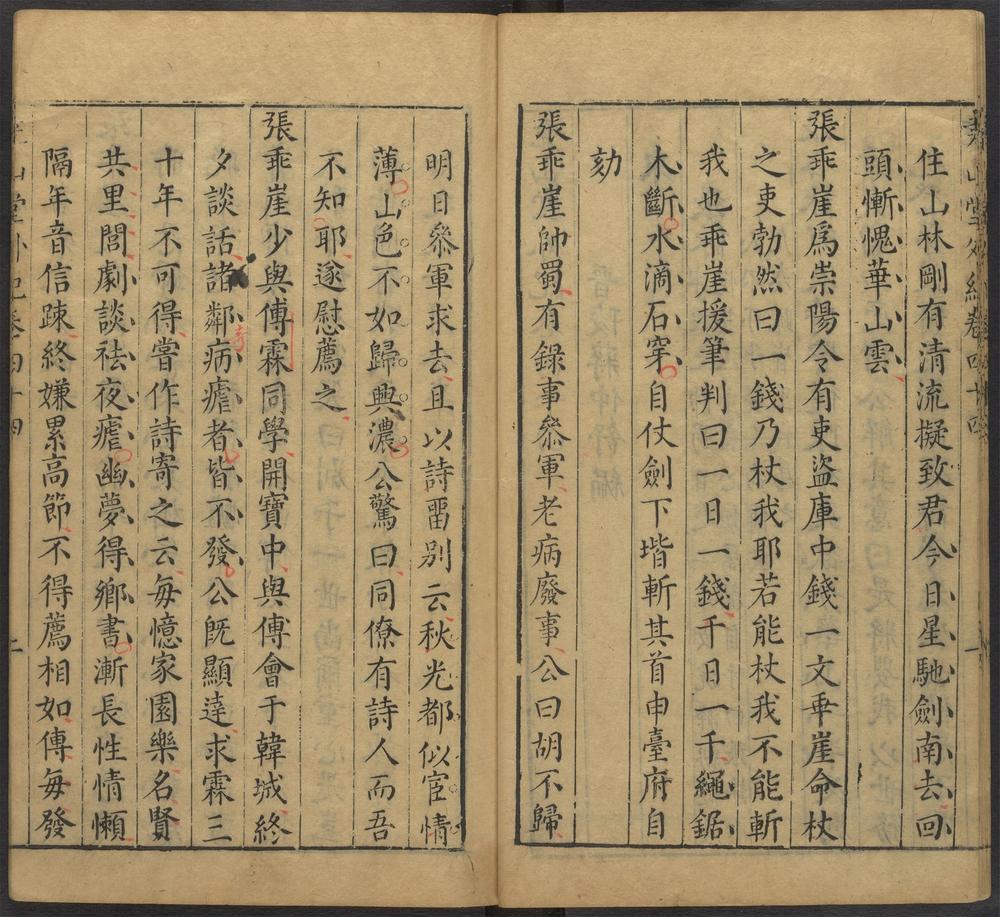 堯山堂外紀卷四十四
住山林剛有清流擬致君今日星馳劍南去回
頭慚愧華山雲
張乖崖爲崇陽令有吏盜庫中錢一文乖崖命杖
之吏勃然曰一錢乃杖我耶若能杖我不能斬
我也乖崖援筆判曰一日一錢千日一千繩鋸
木斷水滴石穿自仗劍下堦斬其首申臺府自
劾
張乖崖帥蜀有錄事參軍老病廢事公曰胡不歸
明日參軍求去且以詩畱別云秋光都似宦情
薄山色不如歸興濃公驚曰同僚有詩人而吾
不知耶遂慰薦之
張乖崖少與傅霖同學開寶中與傅會于韓城終
夕談話諸鄰病瘧者皆不發公旣顯達求霖三
十年不可得嘗作詩寄之云每憶家園樂名賢
共里閭劇談祛夜瘧幽夢得鄉書漸長性情懶
隔年音信踈終嫌累高節不得薦相如傅每發
山堂外紀卷四十四